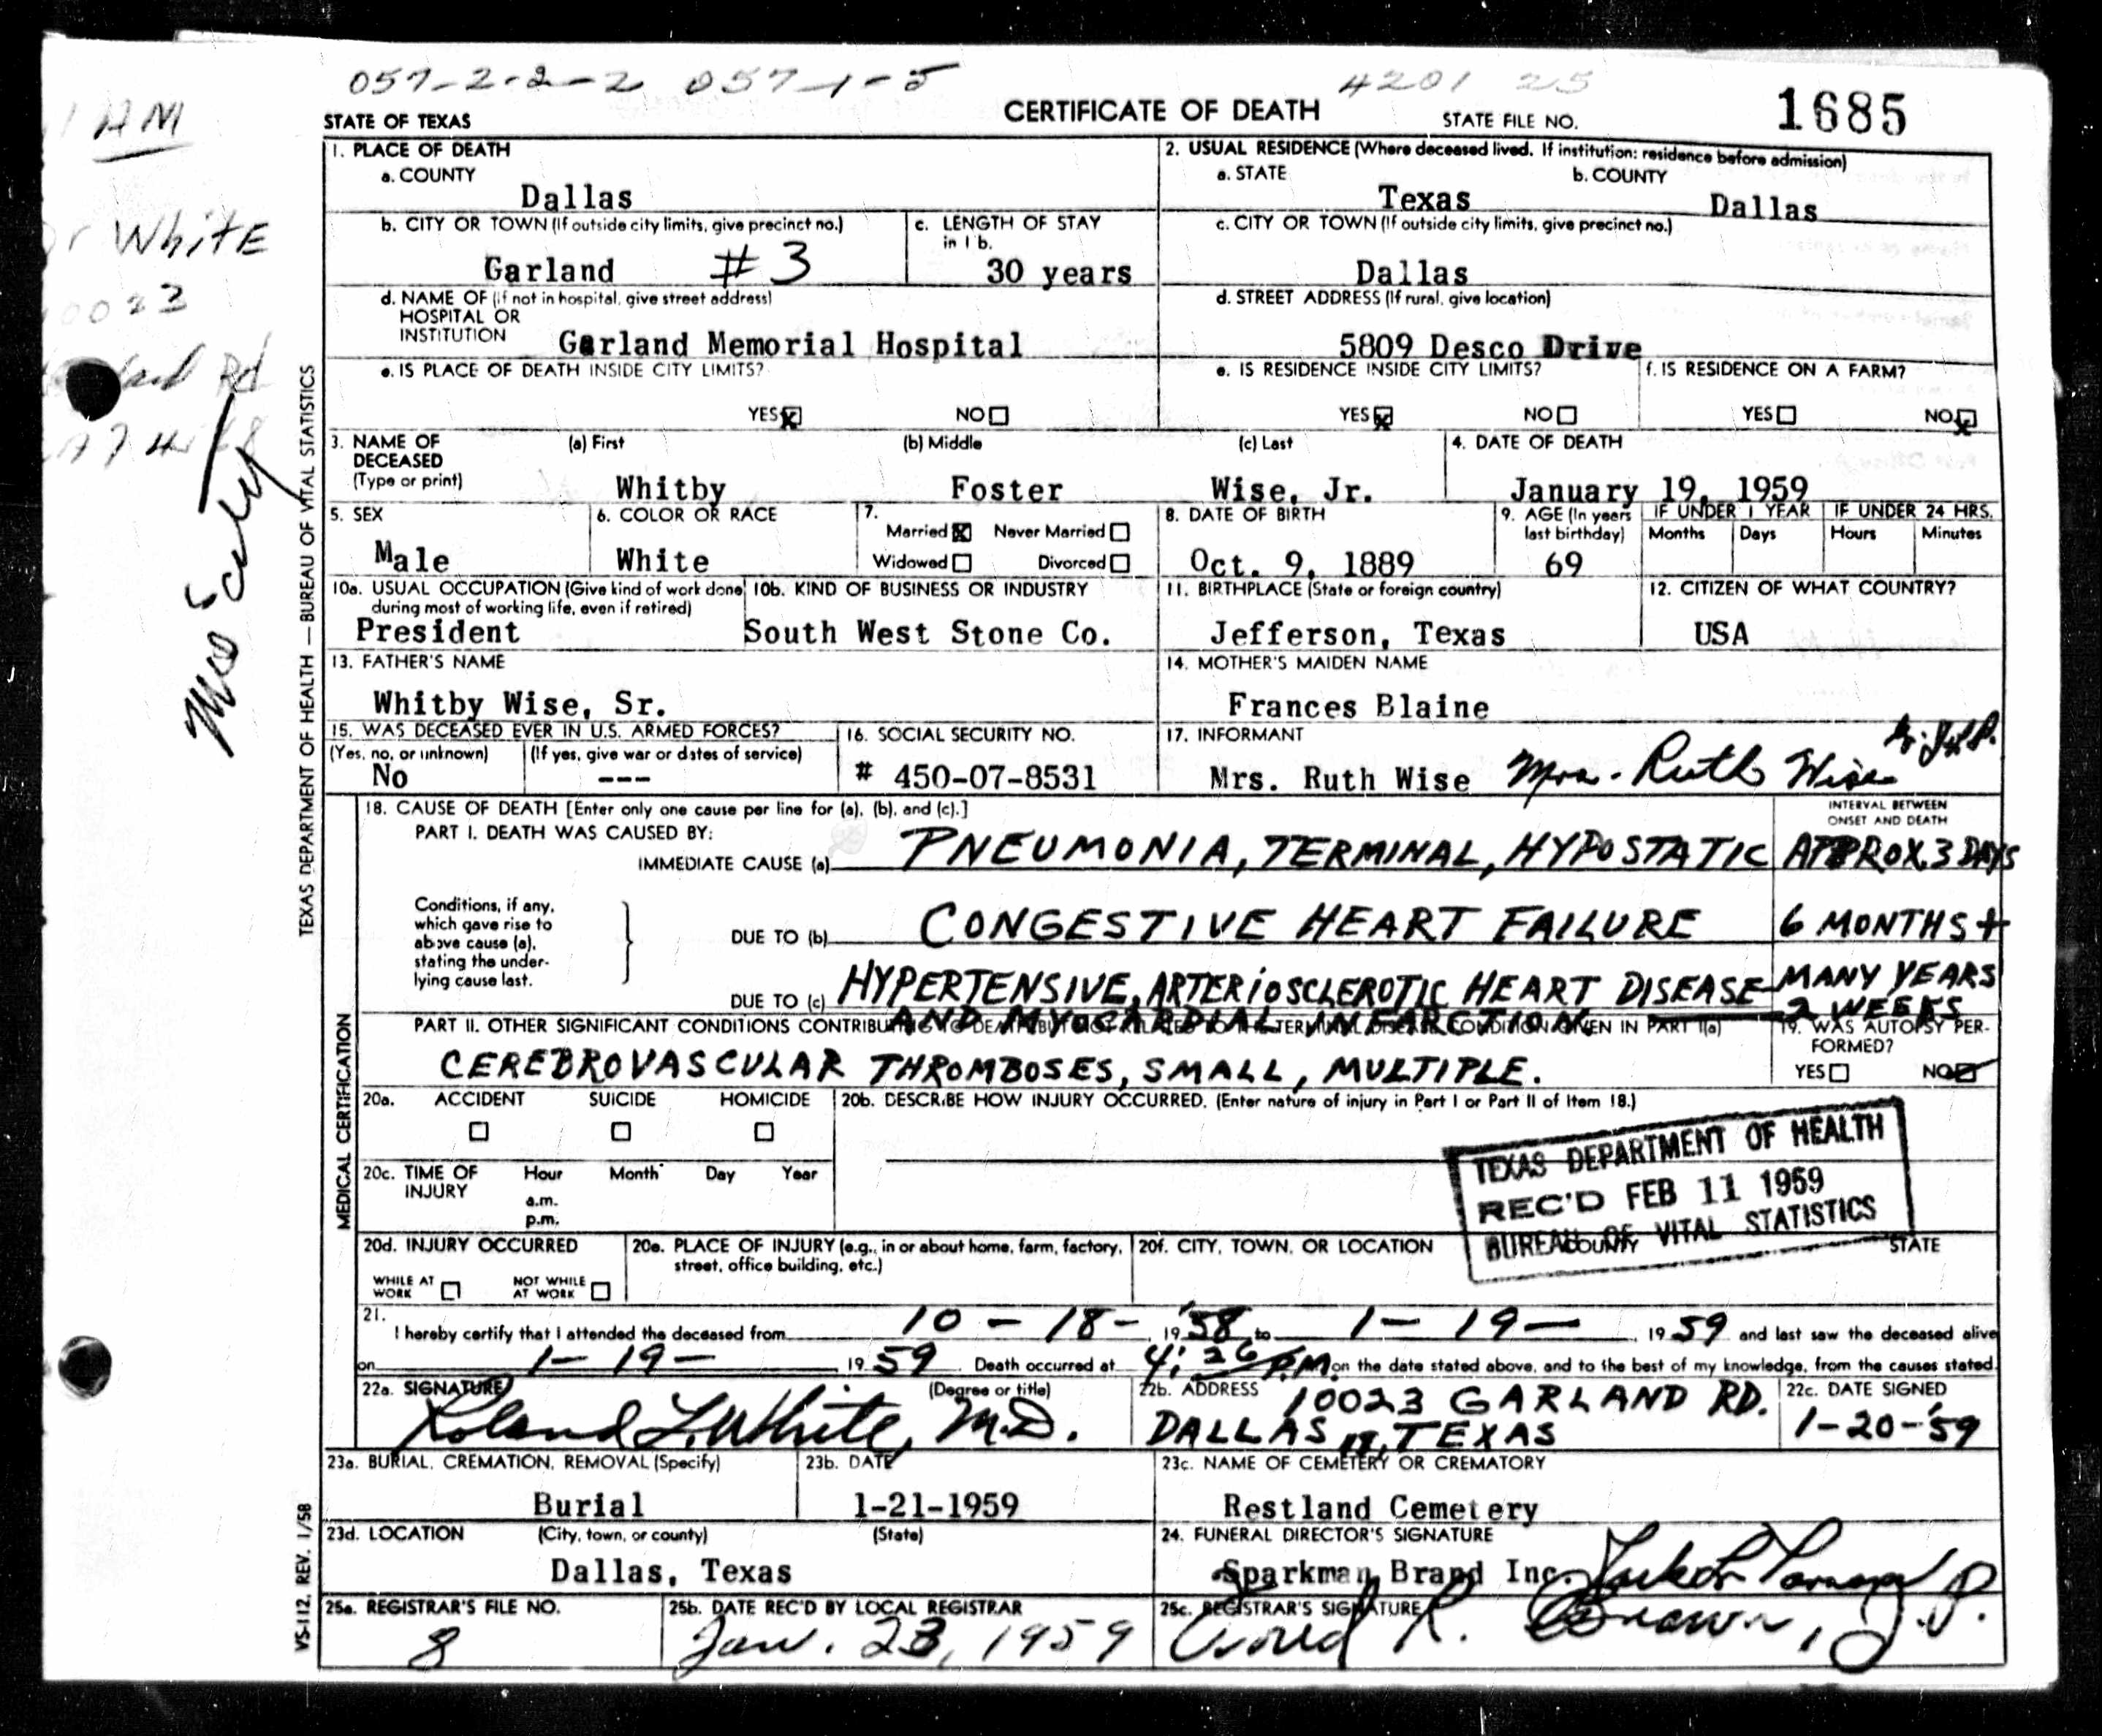 057-2-2-2 057-1-5 4201 25
STATE OF TEXAS
CERTIFICATE OF DEATH
STATE FILE NO. 1685
1. PLACE OF DEATH
a. COUNTY
Dallas
b. CITY OR TOWN (If outside city limits, give precinct no.)
Garland #3
c. LENGTH OF STAY in 1 b.
30 years
d. NAME OF (if not in hospital, give street address) HOSPITAL OR INSTITUTION
Garland Memorial Hospital
e. IS PLACE OF DEATH INSIDE CITY LIMITS?
YES NO
2. USUAL RESIDENCE (Where deceased lived. If institution: residence before admission)
a. STATE
Texas
b. COUNTY
Dallas
c. CITY OR TOWN (If outside city limits, give precinct no.)
Dallas
d. STREET ADDRESS (If rural, give location)
5809 Desco Drive
e. IS RESIDENCE INSIDE CITY LIMITS?
YES NO
f. IS RESIDENCE ON A FARM?
YES NO
3. NAME OF DECEASED (Type or print)
(a) First (b) Middle (c) Last
Whitby Foster Wise, Jr.
4. DATE OF DEATH
January 19, 1959
5. SEX
Male
6. COLOR OR RACE
White
7.
Married Never Married
Widowed Divorced
8. DATE OF BIRTH
Oct. 9, 1889
9. AGE (In years last birthday)
69
IF UNDER 1 YEAR
Months Days
IF UNDER 24 HRS.
Hours Minutes
10a. USUAL OCCUPATION (Give kind of work done during most of working life, even if retired)
President
10b. KIND OF BUSINESS OR INDUSTRY
South West Stone Co.
11. BIRTHPLACE (State or foreign country)
Jefferson, Texas
12. CITIZEN OF WHAT COUNTRY?
USA
13. FATHER'S NAME
Whitby Wise, Sr.
14. MOTHER'S MAIDEN NAME
Frances Blaine
15. WAS DECEASED EVER IN U.S. ARMED FORCES?
(Yes, no, or unknown) (If yes, give war or dates of service)
No ---
16. SOCIAL SECURITY NO.
# 450-07-8531
17. INFORMANT
Mrs. Ruth Wise Mrs. Ruth Wise
18. CAUSE OF DEATH [Enter only one cause per line for (a), (b), and (c).]
INTERVAL BETWEEN ONSET AND DEATH
PART I. DEATH WAS CAUSED BY:
IMMEDIATE CAUSE (a) PNEUMONIA, TERMINAL, HYPOSTATIC APPROX. 3 DAYS
Conditions, if any, which gave rise to above cause (a), stating the underlying cause last.
DUE TO (b) CONGESTIVE HEART FAILURE 6 MONTHS +
DUE TO (c) HYPERTENSIVE, ARTERIOSCLEROTIC HEART DISEASE MANY YEARS
AND MYOCARDIAL INFARCTION 2 WEEKS
PART II. OTHER SIGNIFICANT CONDITIONS CONTRIBUTING TO DEATH BUT NOT RELATED TO THE TERMINAL DISEASE CONDITION GIVEN IN PART I(a)
CEREBROVASCULAR THROMBOSES, SMALL, MULTIPLE.
19. WAS AUTOPSY PERFORMED?
YES NO
20a. ACCIDENT SUICIDE HOMICIDE
20b. DESCRIBE HOW INJURY OCCURRED. (Enter nature of injury in Part I or Part II of Item 18.)
20c. TIME OF INJURY
Hour Month Day Year
a.m.
p.m.
TEXAS DEPARTMENT OF HEALTH
REC'D FEB 11 1959
BUREAU OF VITAL STATISTICS
20d. INJURY OCCURRED
WHILE AT WORK NOT WHILE AT WORK
20e. PLACE OF INJURY (e.g., in or about home, farm, factory, street, office building, etc.)
20f. CITY, TOWN, OR LOCATION COUNTY STATE
21.
I hereby certify that I attended the deceased from 10-18-, 19 '58 to 1-19-, 19 59 and last saw the deceased alive
on 1-19- 19 59. Death occurred at 4:26 P.M. on the date stated above, and to the best of my knowledge, from the causes stated.
22a. SIGNATURE (Degree or title)
Roland L. White, M.D.
22b. ADDRESS 10023 GARLAND RD.
DALLAS 18, TEXAS
22c. DATE SIGNED
1-20-'59
23a. BURIAL, CREMATION, REMOVAL (Specify)
Burial
23b. DATE
1-21-1959
23c. NAME OF CEMETERY OR CREMATORY
Restland Cemetery
23d. LOCATION (City, town, or county) (State)
Dallas, Texas
24. FUNERAL DIRECTOR'S SIGNATURE
Sparkman Brand Inc.
25a. REGISTRAR'S FILE NO.
8
25b. DATE REC'D BY LOCAL REGISTRAR
Jan. 23, 1959
25c. REGISTRAR'S SIGNATURE
R. Brown, J.P.
TEXAS DEPARTMENT OF HEALTH — BUREAU OF VITAL STATISTICS
MEDICAL CERTIFICATION
VS-112, REV. 1/58
AM
White
0023
Rd